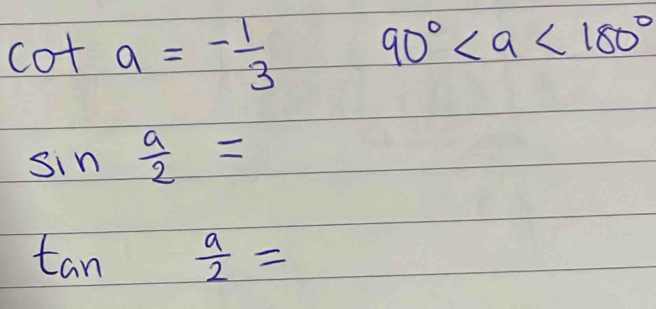 cot a = -1/3 90° < a < 180°
sin a/2 =
tan a/2 =